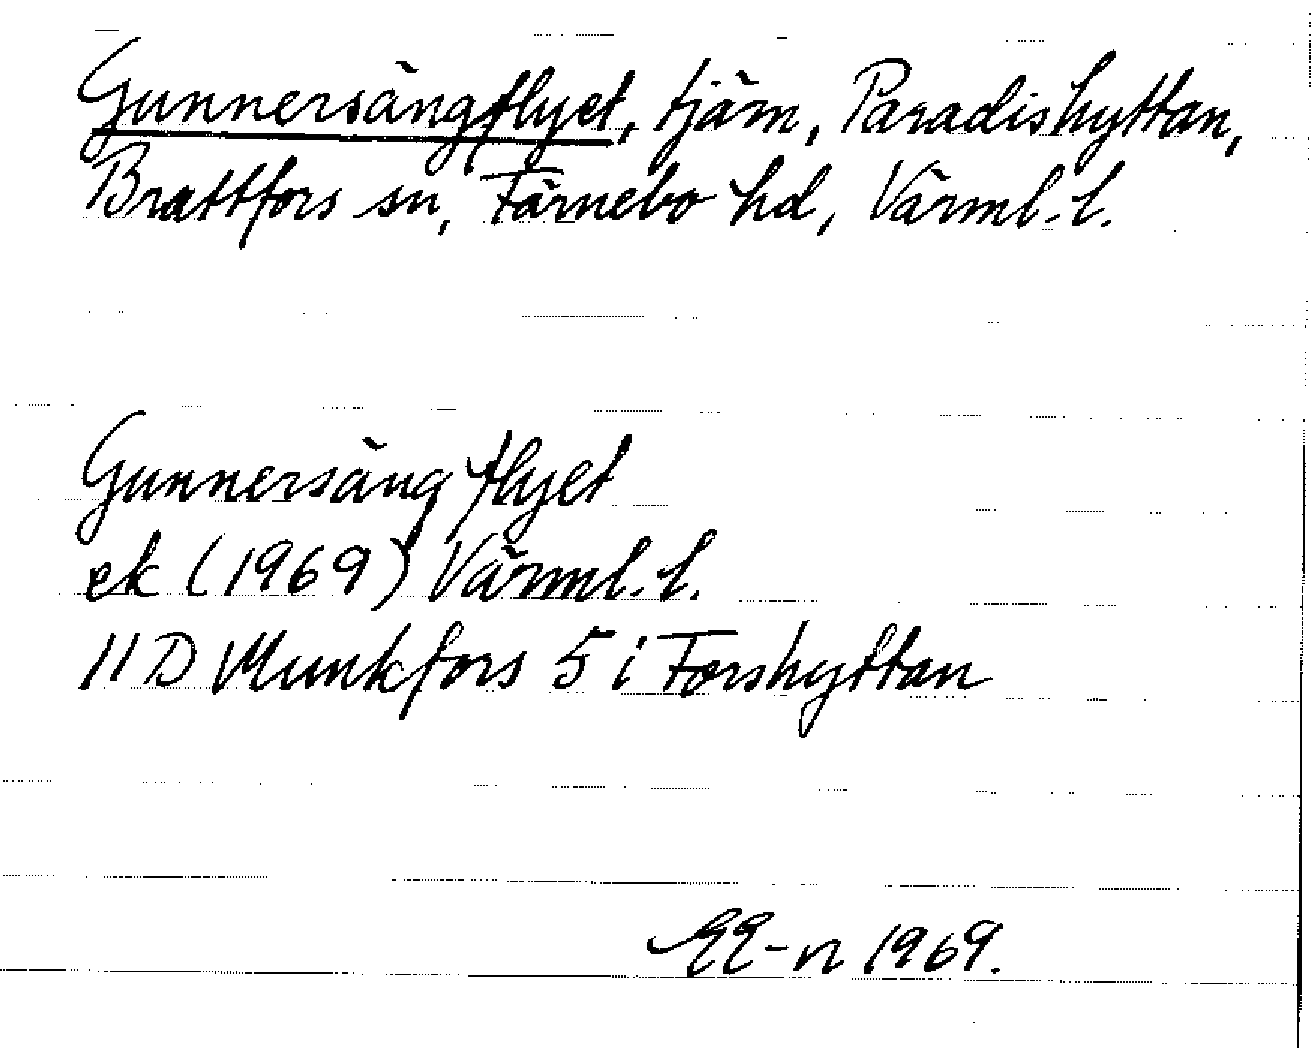 Gunnersängflyet, tjärn, Paradishyttan,
Brattfors sn, Färnebo hd, Värml. l.
Gunnersängflyet
ek (1969) Värml. l.
11 D Munkfors 5 i Forshyttan
EE-n 1969.